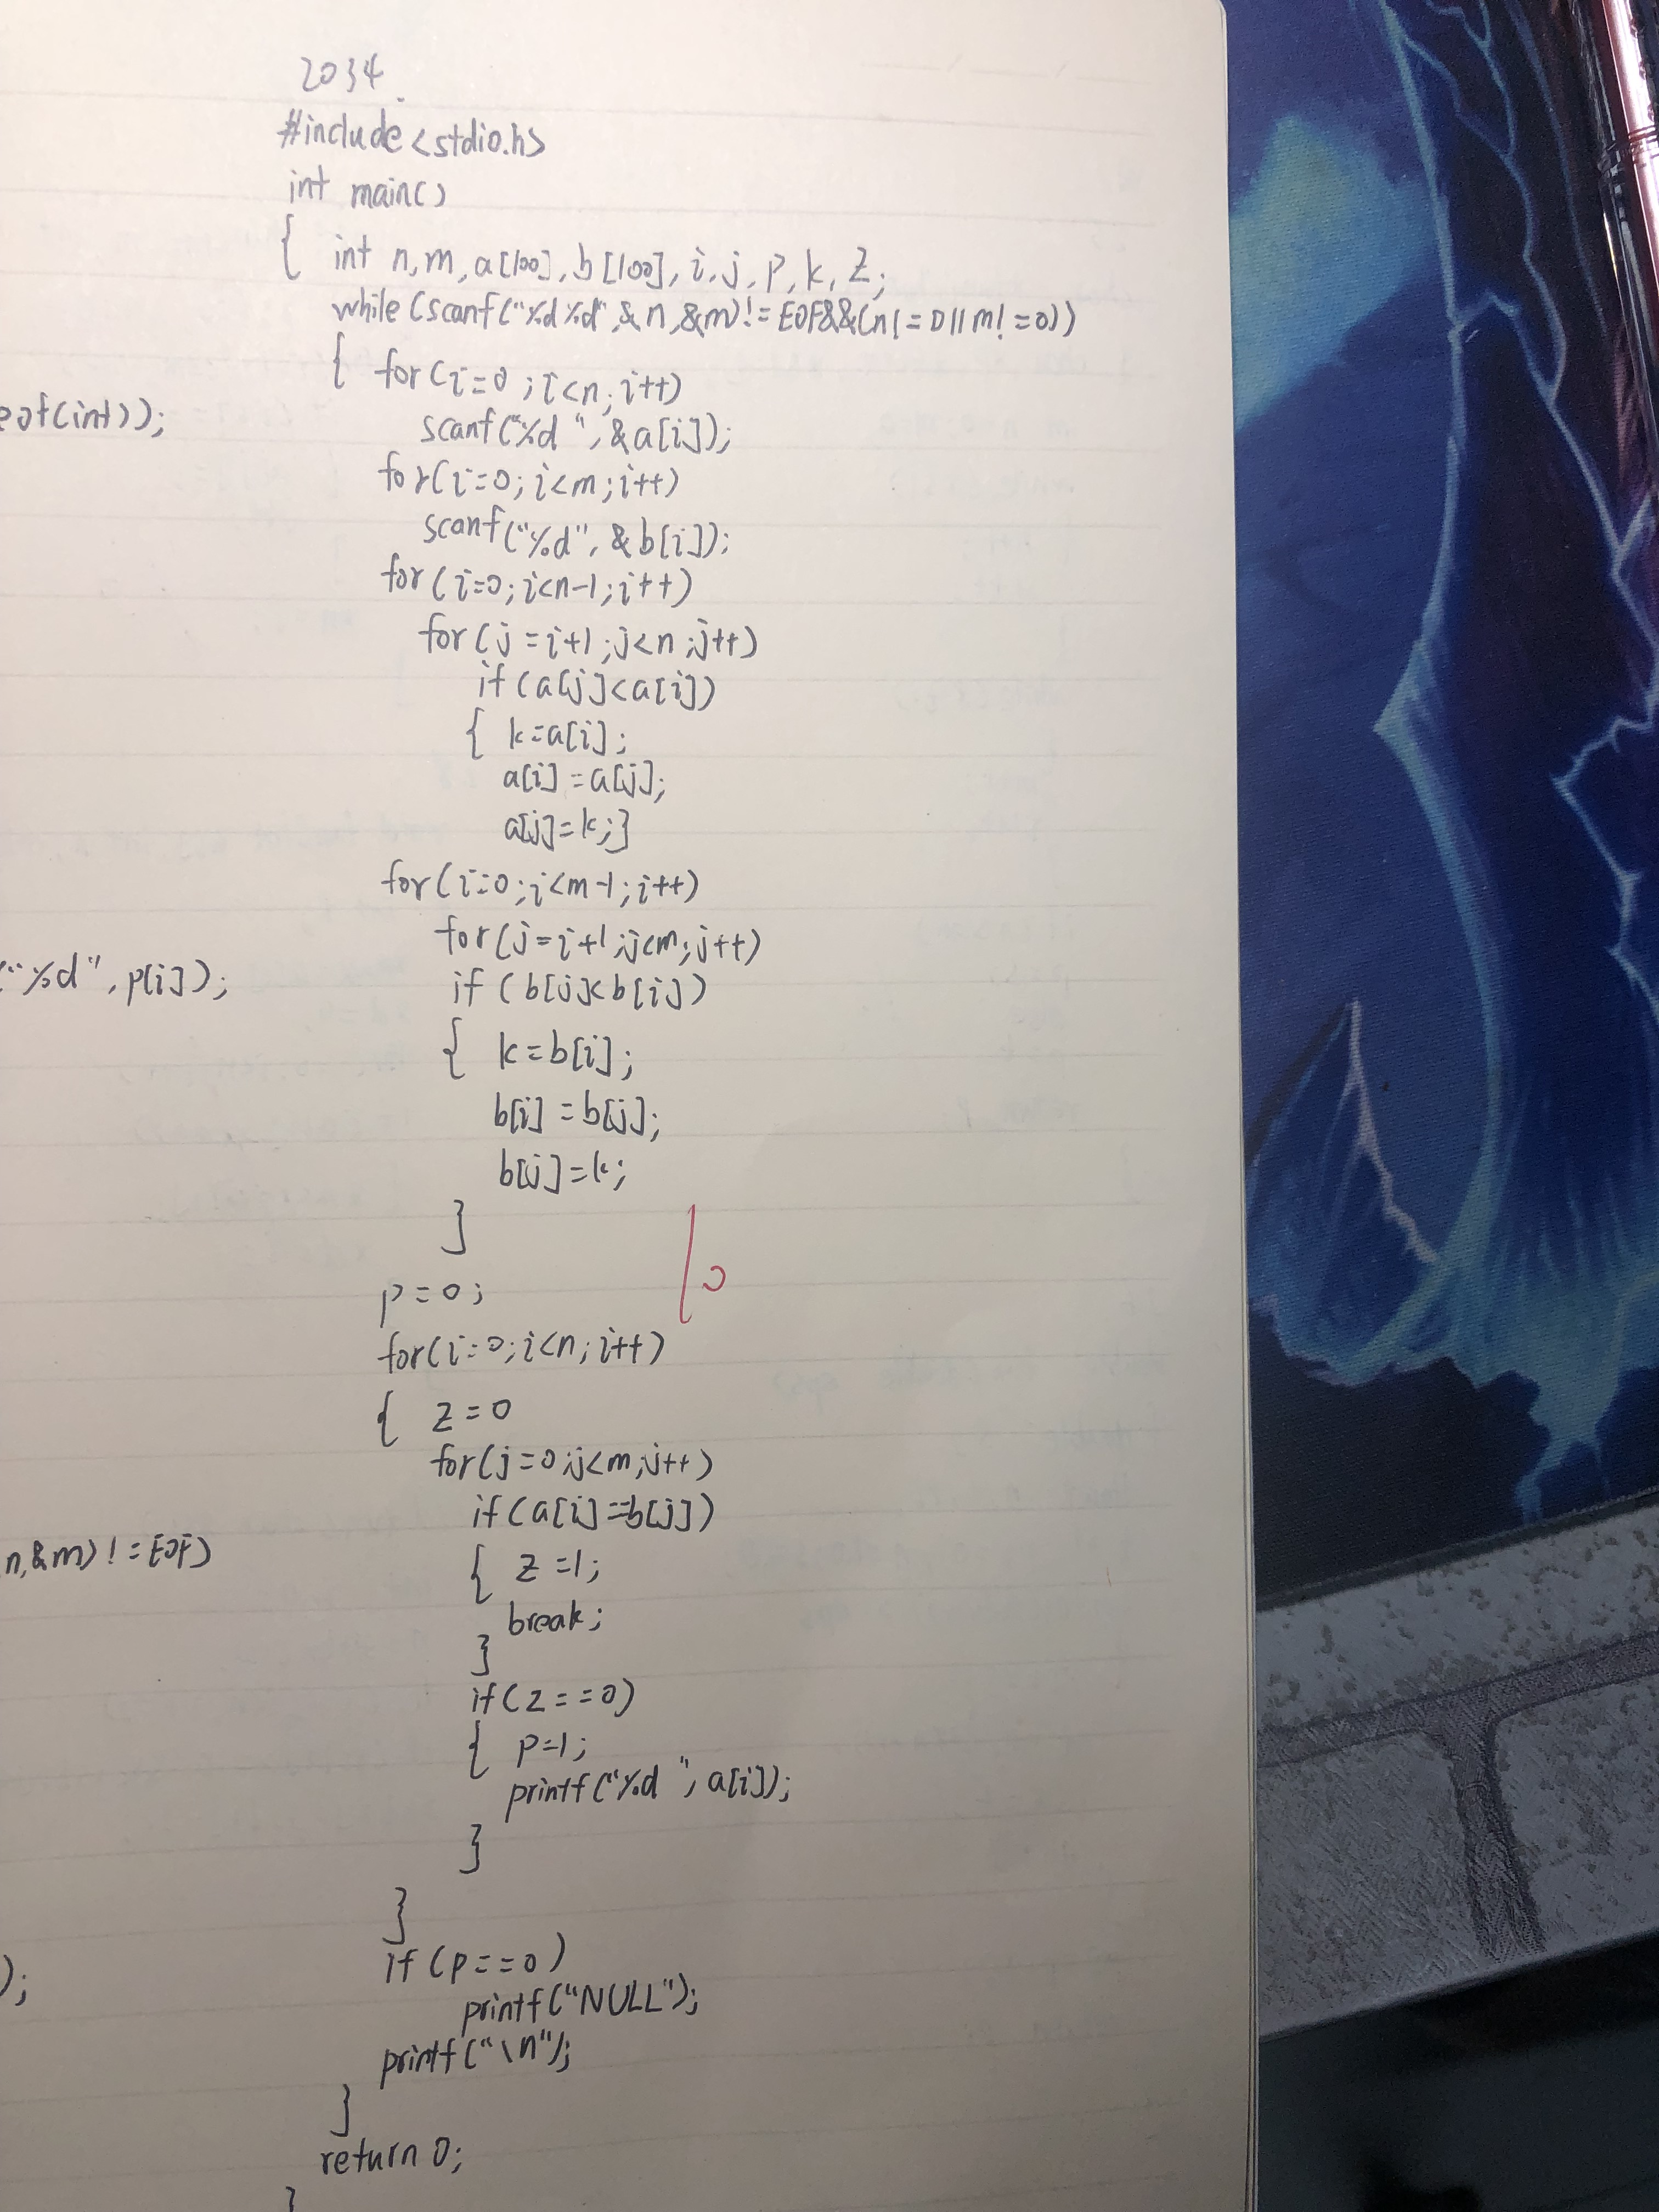 2034
#include<stdio.h>
int main()
{ int n,m,a[100],b[100],i,j,p,k,z;
while(scanf("%d%d",&n,&m)!=EOF&&(n!=0||m!=0))
{ for(i=0;i<n;i++)
scanf("%d ",&a[i]);
for(i=0;i<m;i++)
scanf("%d",&b[i]);
for(i=0;i<n-1;i++)
for(j=i+1;j<n;j++)
if(a[j]<a[i])
{ k=a[i];
a[i]=a[j];
a[j]=k;}
for(i=0;i<m-1;i++)
for(j=i+1;j<m;j++)
if(b[j]<b[i])
{ k=b[i];
b[i]=b[j];
b[j]=k;
}
p=0;
for(i=0;i<n;i++)
{ z=0
for(j=0;j<m;j++)
if(a[i]==b[j])
{ z=1;
break;
}
if(z==0)
{ p=1;
printf("%d ",a[i]);
}
}
if(p==0)
printf("NULL");
printf("\n");
}
return 0;
}
eof(int));
("%d",p[i]);
n,&m)!=EOF)
);
10